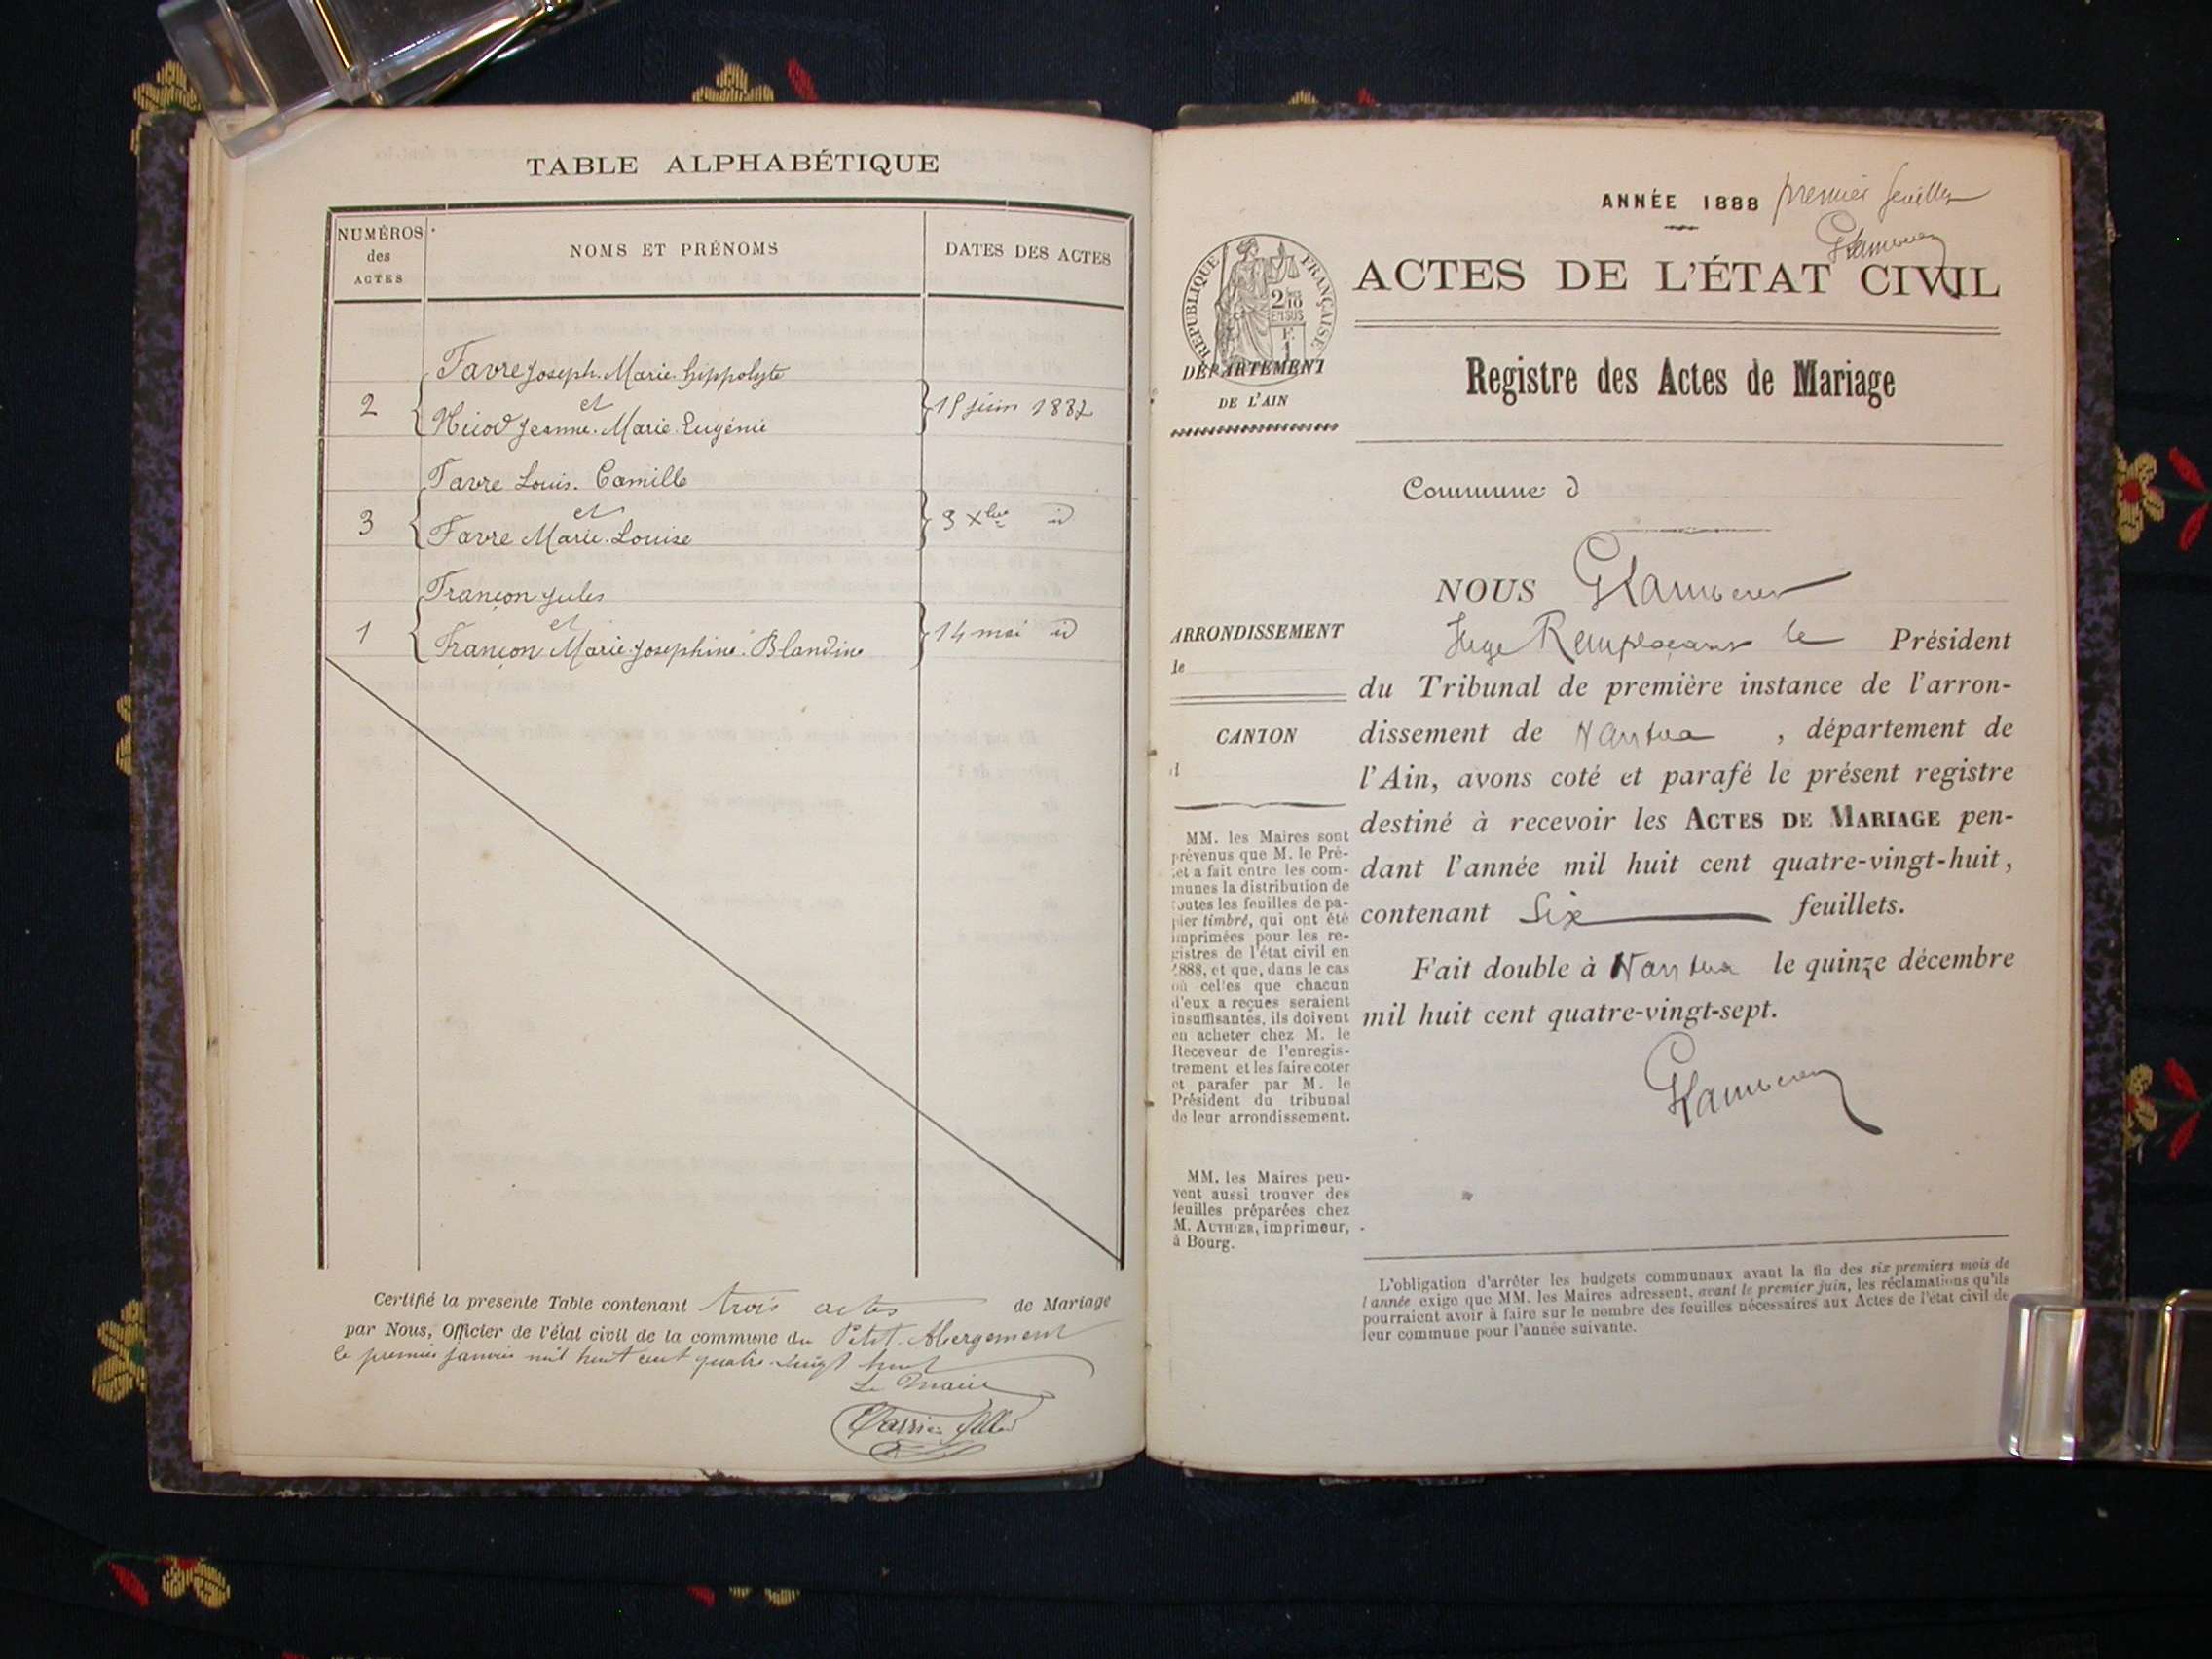 TABLE ALPHABÉTIQUE
NUMÉROS des ACTES
NOMS ET PRÉNOMS
DATES DES ACTES
Favre Joseph. Marie. hippolyte
2 et 15 juin 1887
Jeanne. Marie. Eugénie
Favre Louis. Camille
3 et 3 Xbre id
Favre Marie. Louise
Françon Jules
1 et 14 mai id
Françon Marie. Josephine. Blandine
Certifié la presente Table contenant trois actes de Mariage
par Nous, Officier de l'état civil de la commune du Petit. Abergement
le premier janvier mil huit cent quatre-vingt huit
Le Maire
ANNÉE 1888 premier feuillet
RÉPUBLIQUE FRANÇAISE
2/10 EN SUS
ACTES DE L'ÉTAT CIVIL
DÉPARTEMENT
DE L'AIN
Registre des Actes de Mariage
Commune d
NOUS
ARRONDISSEMENT
le
Juge Remplaçant le Président
du Tribunal de première instance de l'arron-
dissement de Nantua , département de
l'Ain, avons coté et parafé le présent registre
destiné à recevoir les ACTES DE MARIAGE pen-
dant l'année mil huit cent quatre-vingt-huit,
contenant Six feuillets.
Fait double à Nantua le quinze décembre
mil huit cent quatre-vingt-sept.
CANTON
d
MM. les Maires sont
prévenus que M. le Pré-
fet a fait entre les com-
munes la distribution de
toutes les feuilles de pa-
pier timbré, qui ont été
imprimées pour les re-
gistres de l'état civil en
1888, et que, dans le cas
où celles que chacun
d'eux a reçues seraient
insuffisantes, ils doivent
en acheter chez M. le
Receveur de l'enregis-
trement et les faire coter
et parafer par M. le
Président du tribunal
de leur arrondissement.
MM. les Maires peu-
vent aussi trouver des
feuilles préparées chez
M. AUTHIER, imprimeur,
à Bourg.
L'obligation d'arrêter les budgets communaux avant la fin des six premiers mois de
l'année exige que MM. les Maires adressent, avant le premier juin, les réclamations qu'ils
pourraient avoir à faire sur le nombre des feuilles nécessaires aux Actes de l'état civil de
leur commune pour l'année suivante.